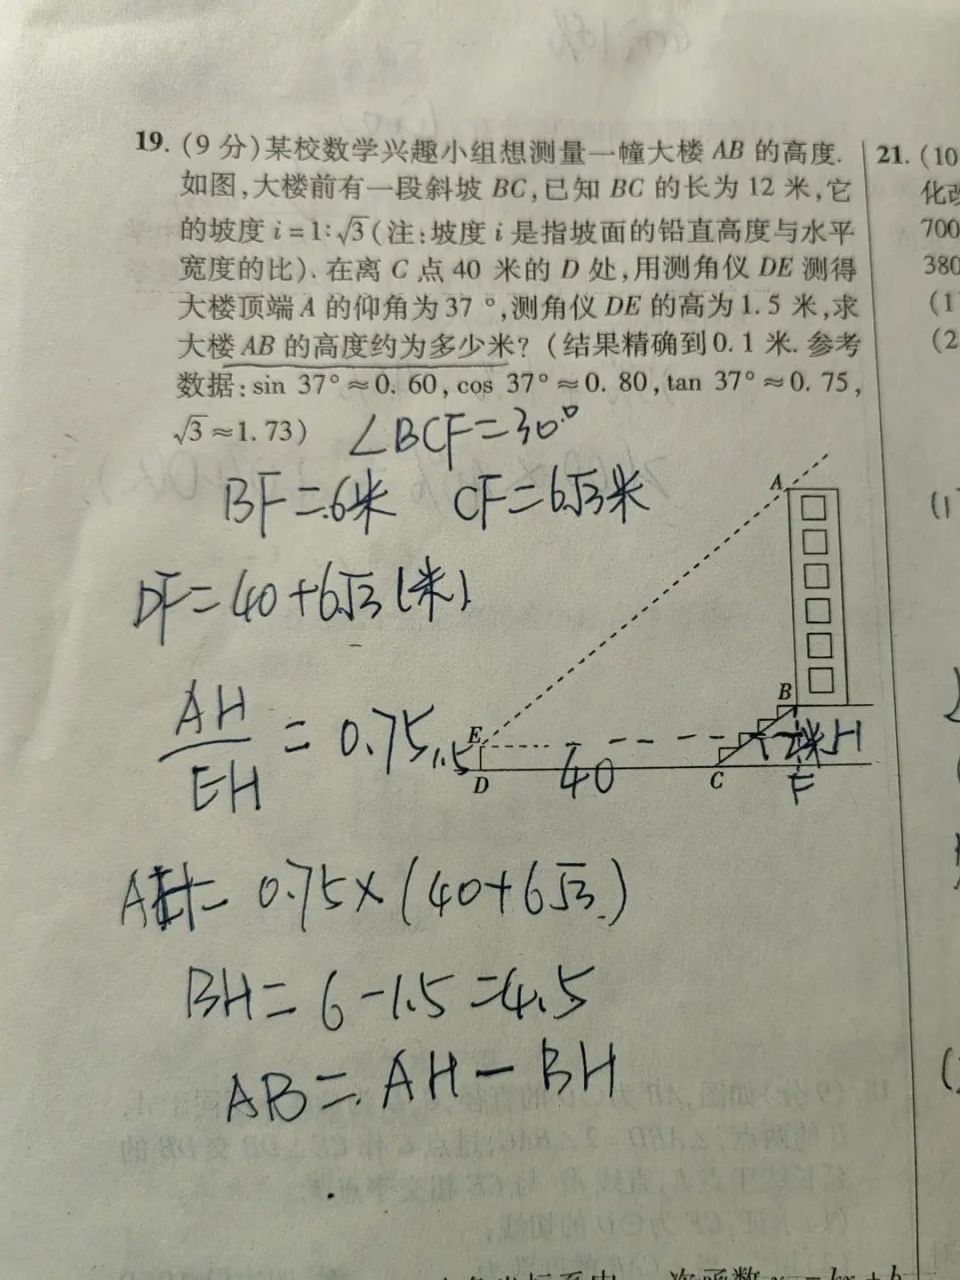 19. (9 分)某校数学兴趣小组想测量一幢大楼 AB 的高度.
如图,大楼前有一段斜坡 BC,已知 BC 的长为 12 米,它
的坡度 i=1:√3(注:坡度 i 是指坡面的铅直高度与水平
宽度的比). 在离 C 点 40 米的 D 处,用测角仪 DE 测得
大楼顶端 A 的仰角为 37 °,测角仪 DE 的高为 1.5 米,求
大楼 AB 的高度约为多少米?(结果精确到 0.1 米. 参考
数据:sin 37°≈0.60,cos 37°≈0.80,tan 37°≈0.75,
√3≈1.73)
∠BCF=30°
BF=6米 CF=6√3米
A
DF=40+6√3(米)
B
AH/EH=0.75
E
1.5
12米
H
D
40
C
F
AH=0.75×(40+6√3)
BH=6-1.5=4.5
AB=AH-BH
21. (10
化改
700
380
(1
(2
(1